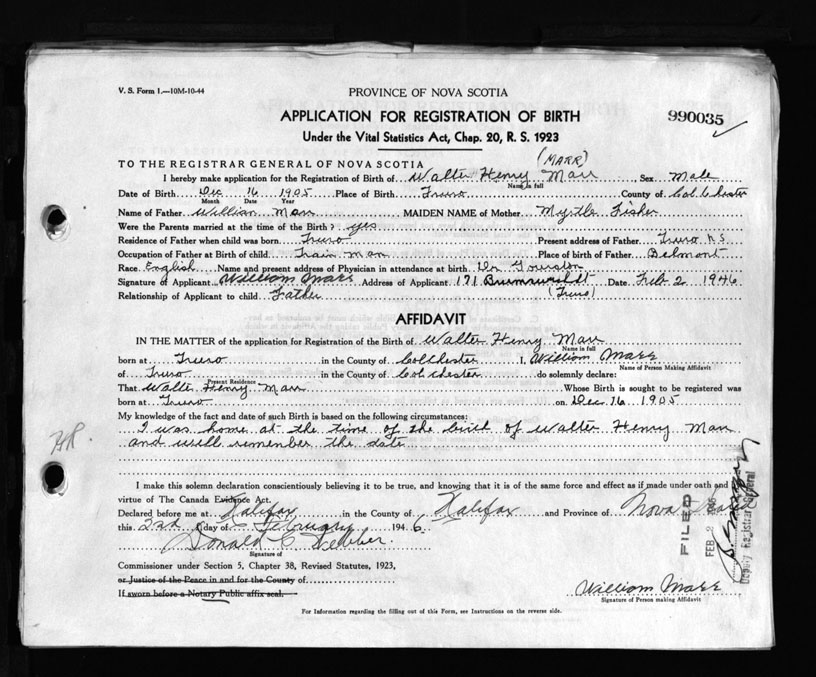 V. S. Form 1.—10M-10-44
PROVINCE OF NOVA SCOTIA
APPLICATION FOR REGISTRATION OF BIRTH
990035
Under the Vital Statistics Act, Chap. 20, R. S. 1923
(MARR)
TO THE REGISTRAR GENERAL OF NOVA SCOTIA
I hereby make application for the Registration of Birth of Walter Henry Marr Sex Male
Name in full
Date of Birth Dec 16 1905 Place of Birth Truro County of Colchester
Month Date Year
Name of Father William Marr MAIDEN NAME of Mother Myrtle Fisher
Were the Parents married at the time of the Birth? yes
Residence of Father when child was born Truro Present address of Father Truro N S
Occupation of Father at Birth of child Train man Place of birth of Father Belmont
Race English Name and present address of Physician in attendance at birth Dr
Signature of Applicant William Marr Address of Applicant 171 Date Feb 2 1946
Relationship of Applicant to child Father (Truro)
AFFIDAVIT
IN THE MATTER of the application for Registration of the Birth of Walter Henry Marr
Name in full
born at Truro in the County of Colchester I, William Marr
Name of Person Making Affidavit
of Truro in the County of Colchester do solemnly declare:
Present Residence
That Walter Henry Marr Whose Birth is sought to be registered was
born at Truro on Dec 16 1905
My knowledge of the fact and date of such Birth is based on the following circumstances:
I was home at the time of the birth of Walter Henry Marr
and will remember the date
H.R.
I make this solemn declaration conscientiously believing it to be true, and knowing that it is of the same force and effect as if made under oath and by
virtue of The Canada Evidence Act.
Declared before me at Halifax in the County of Halifax and Province of Nova Scotia
this 2nd day of February 1946.
Donald C Webber
Signature of
FILED
FEB 2 1946
Deputy Registrar General
Commissioner under Section 5, Chapter 38, Revised Statutes, 1923,
or Justice of the Peace in and for the County of
If sworn before a Notary Public affix seal.
William Marr
Signature of Person making Affidavit
For Information regarding the filling out of this Form, see Instructions on the reverse side.